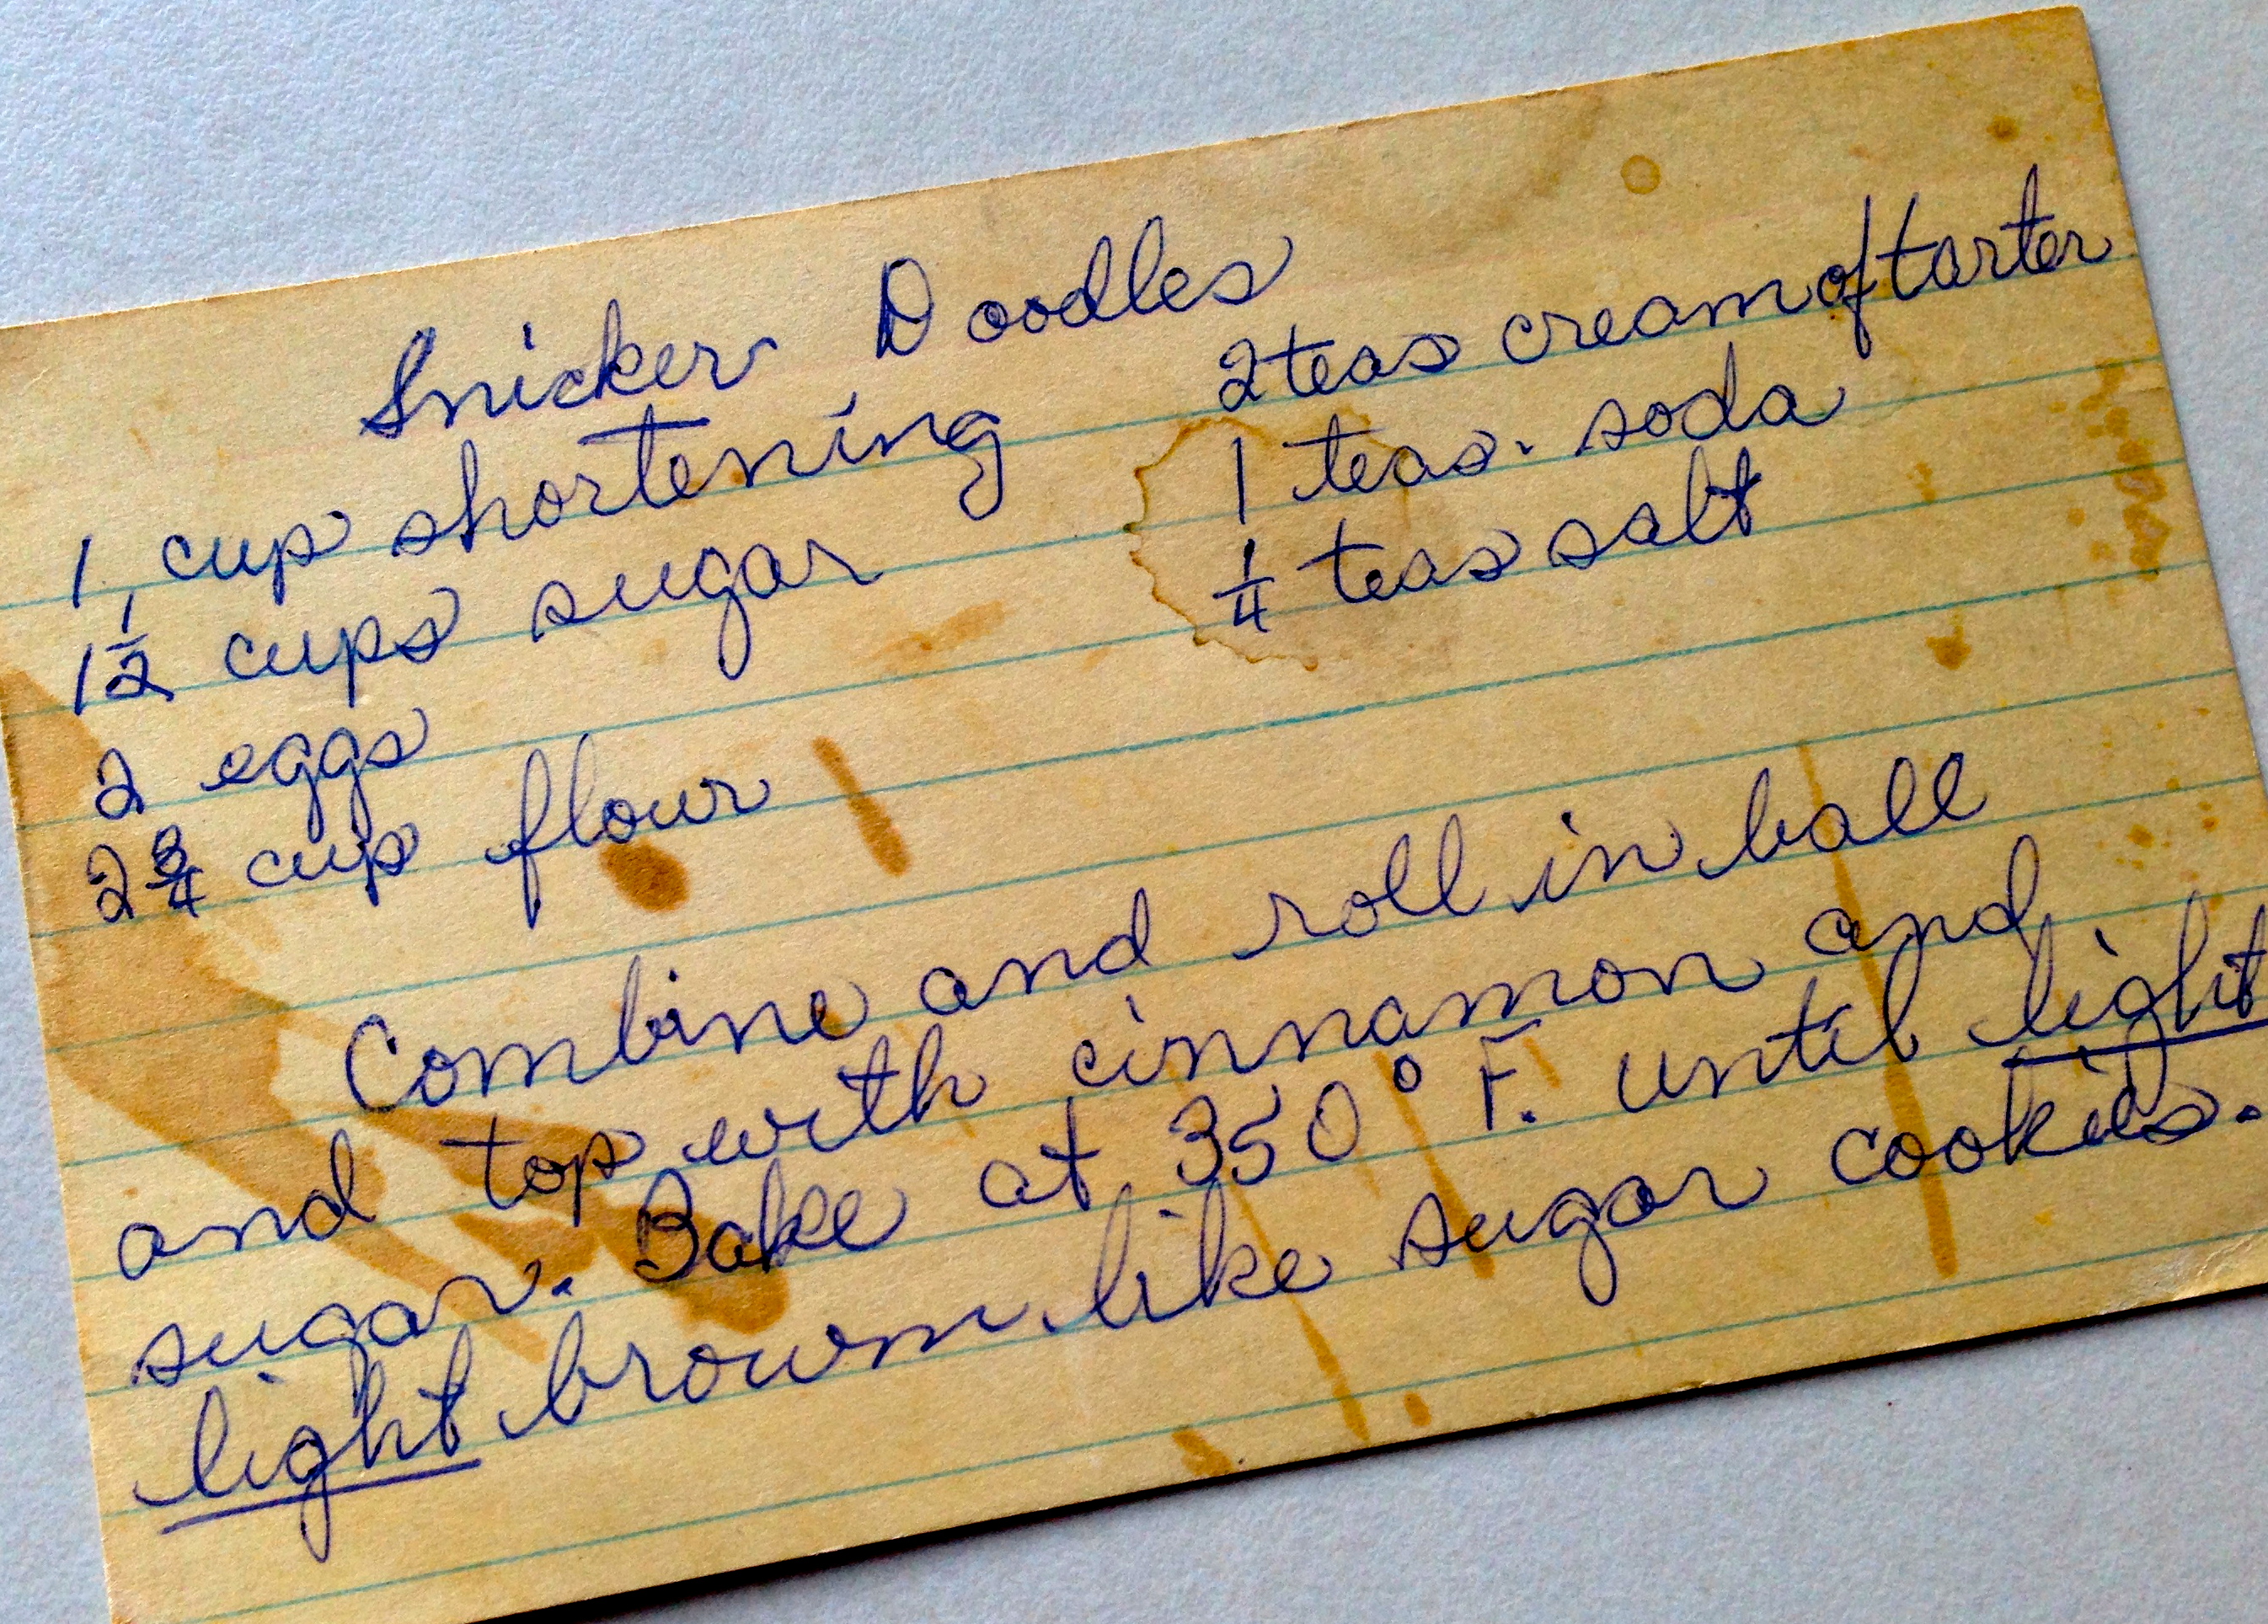 Snicker Doodles
1 cup shortening
1 1/2 cups sugar
2 eggs
2 3/4 cup flour
2 teas cream of tarter
1 teas. soda
1/4 teas salt
Combine and roll in ball
and top with cinnamon and
sugar. Bake at 350° F. until light
light brown like sugar cookies.